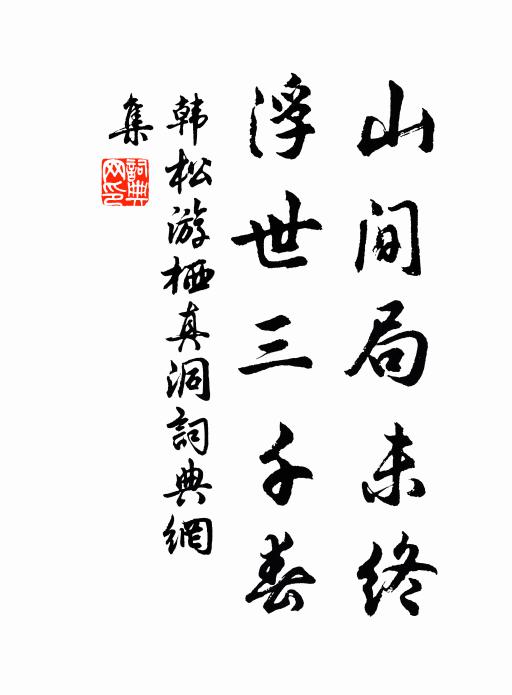 山间局未终
浮世三千春
韩松游栖真洞詞典網
集
詞典
网印